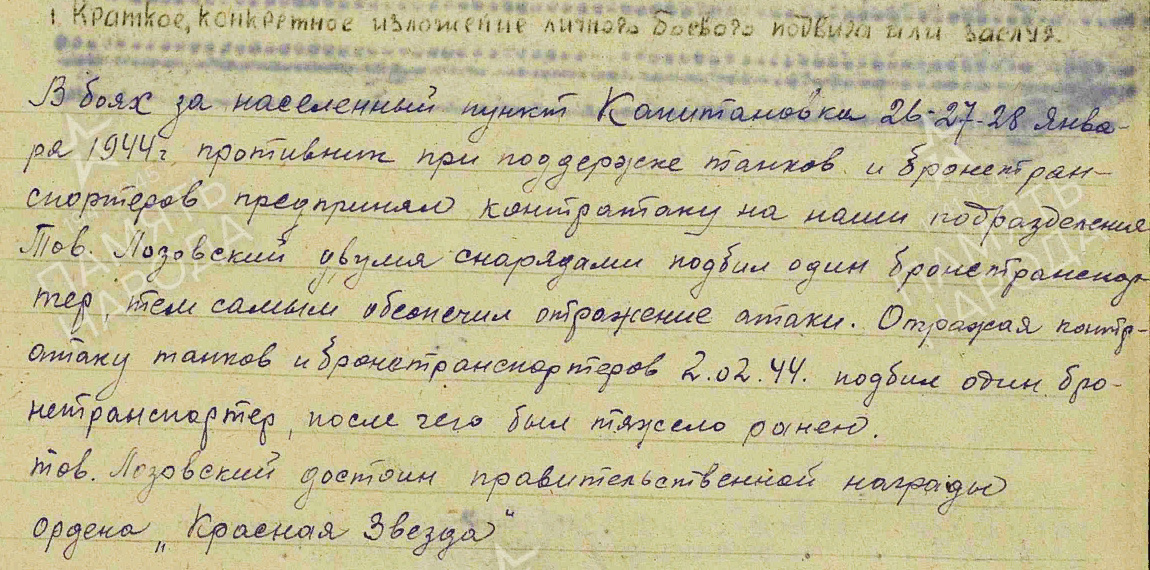 1. Краткое, конкретное изложение личного боевого подвига или заслуг.
В боях за населенный пункт Капитановка 26-27-28 Янва-
ря 1944г. противник при поддержке танков и бронетран-
спортеров предпринял контратаку на наши подразделения
Тов. Лозовский двумя снарядами подбил один бронетранспор-
тер, тем самым обеспечил отражение атаки. Отражая контр-
атаку танков и бронетранспортеров 2.02.44. подбил один бро-
нетранспортер, после чего был тяжело ранен.
тов. Лозовский достоин правительственной награды
ордена „Красная Звезда"
ПАМЯТЬ НАРОДА
ПАМЯТЬ НАРОДА